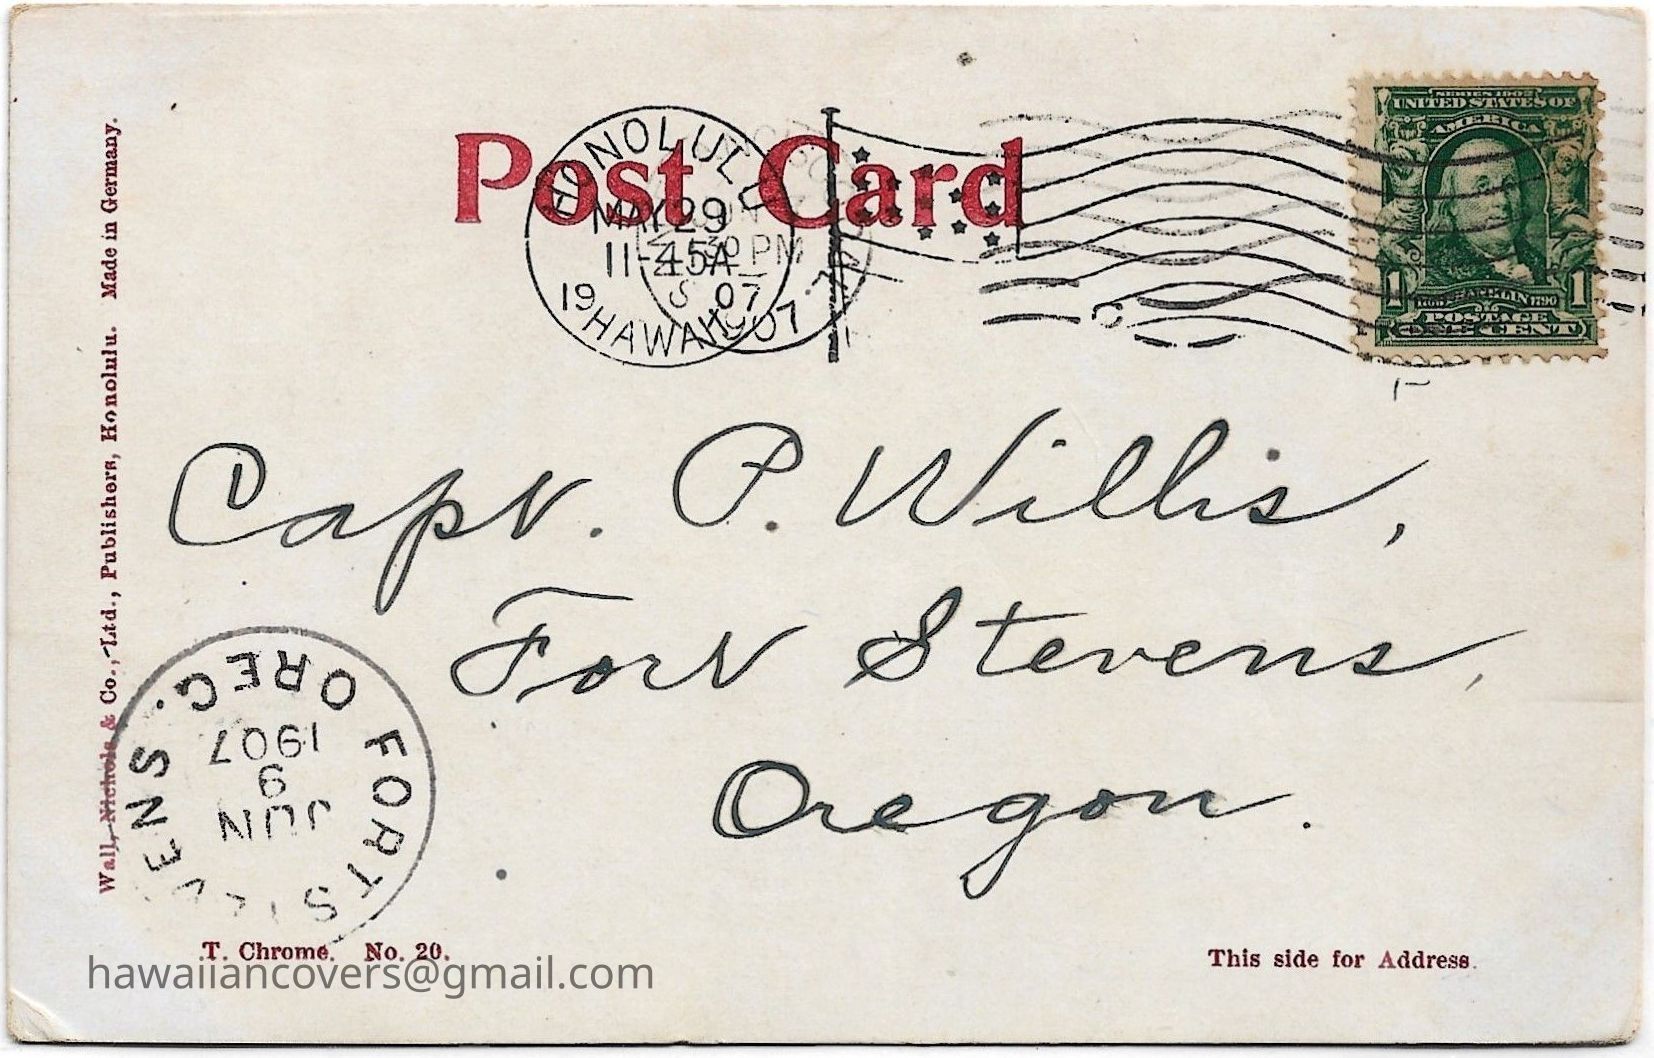 Post Card
HONOLULU
MAY 29
11-45A
1907
HAWAII
30 PM
07
SERIES 1902
UNITED STATES OF
AMERICA
1 1
FRANKLIN 1790
POSTAGE
ONE CENT
Capt. P. Willis,
Fort Stevens,
Oregon.
Wall, Nichols & Co., Ltd., Publishers, Honolulu. Made in Germany.
FORT STEVENS.
OREG.
JUN
9
1907
T. Chrome. No. 20.
This side for Address.
hawaiiancovers@gmail.com